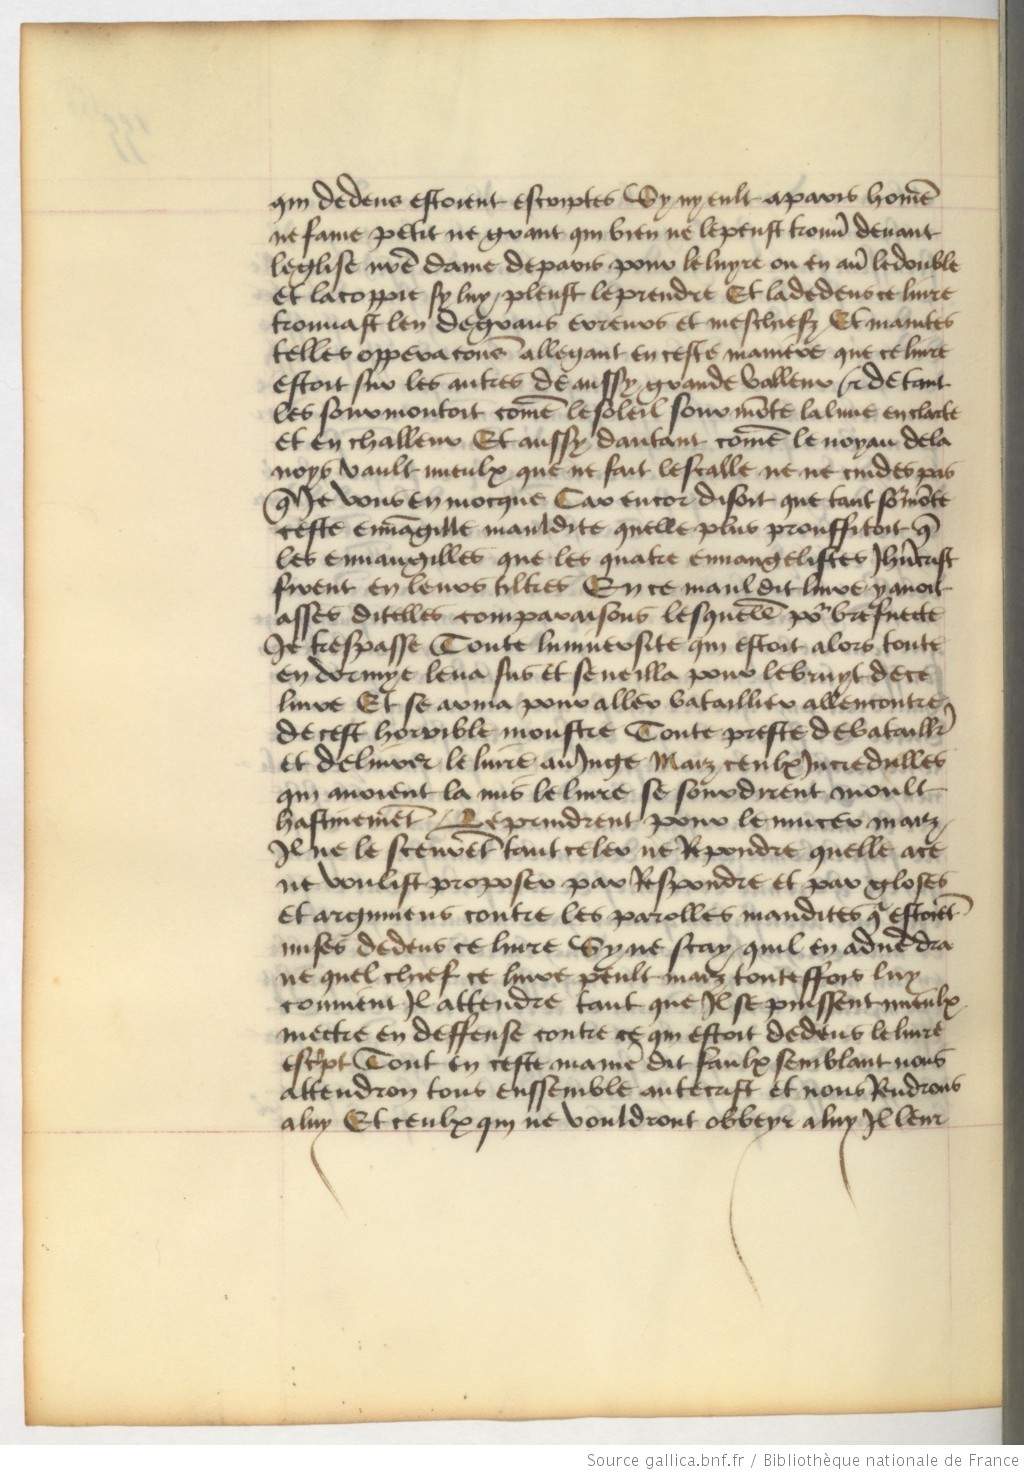 qui dedens estoient escriptes Sy ny eult a paris home
ne fame petit ne grant qui bien ne le peust trouu devant
leglise nre dame de paris pour le luyre ou en au le double
et la coppie sy luy pleust le prendre Et la dedens ce liure
trouuast len de grans erreurs et meschiefz Et maintes
telles opperacons allegant en ceste maniere que ce liure
estoit sur les autres de aussy grande valleur et de tant
les sourmontoit come le soleil sourmote la lune en clarte
Et en challeur Et aussy dautant come le noyau de la
noys vault mieulx que ne fait lescalle ne ne cuides pas
q Je vous en mocque Car encor disoit que tant sormote
ceste euuagille mauldite quelle plus prouffitoit q
les euuangilles que les quatre euuangelistes Jhucrist
firent en leurs tiltres En ce mauldit liure y auoit
asses ditelles comparaisons lesquelle por brefuete
Je trespasse Toute luniuersite qui estoit alors toute
endormye leua sus et se ueilla pour le bruyt de ce
liure Et se arma pour aller bataillier allencontre
de cest horrible monstre Toute preste de bataillr
et deliurer le liure au Juge Maiz ceulx Jncredulles
qui auoient la mis le liure se sourdirent moult
hastiuemet Le prindrent pour le mucer maiz
Jl ne le sceuret tant celer ne Repondre quelle a ce
ne voulist proposer par Respondre et par gloses
et argumens contre les parolles maudites q estoiet
mises dedens ce liure Sy ne scay quil en aduedra
ne quel chief ce liure peult maiz touteffois luy
conuient Jl attendre tant que Jl se puissent mieulx
mectre en deffense contre ce qui estoit dedens le liure
escript Tout en ceste manie dit faulx semblant nous
attendron tous enssemble antecrist et nous Rendrons
a luy Et ceulx qui ne vouldront obbeyr a luy Jl leur
Source gallica.bnf.fr / Bibliothèque nationale de France